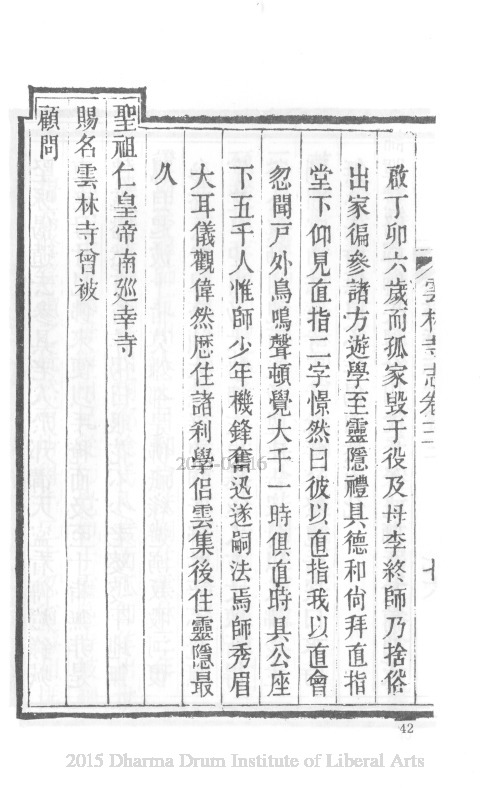 雲林寺志卷三
啟丁卯六歲而孤家毀于役及母李終師乃捨俗
出家徧參諸方遊學至靈隱禮具德和尙拜直指
堂下仰見直指二字憬然曰彼以直指我以直會
忽聞戸外鳥鳴聲頓覺大千一時俱直時具公座
下五千人惟師少年機鋒奮迅遂嗣法焉師秀眉
大耳儀觀偉然歷住諸刹學侶雲集後住靈隱最
久
聖祖仁皇帝南廵幸寺
賜名雲林寺曾被
顧問
42
2015 Dharma Drum Institute of Liberal Arts